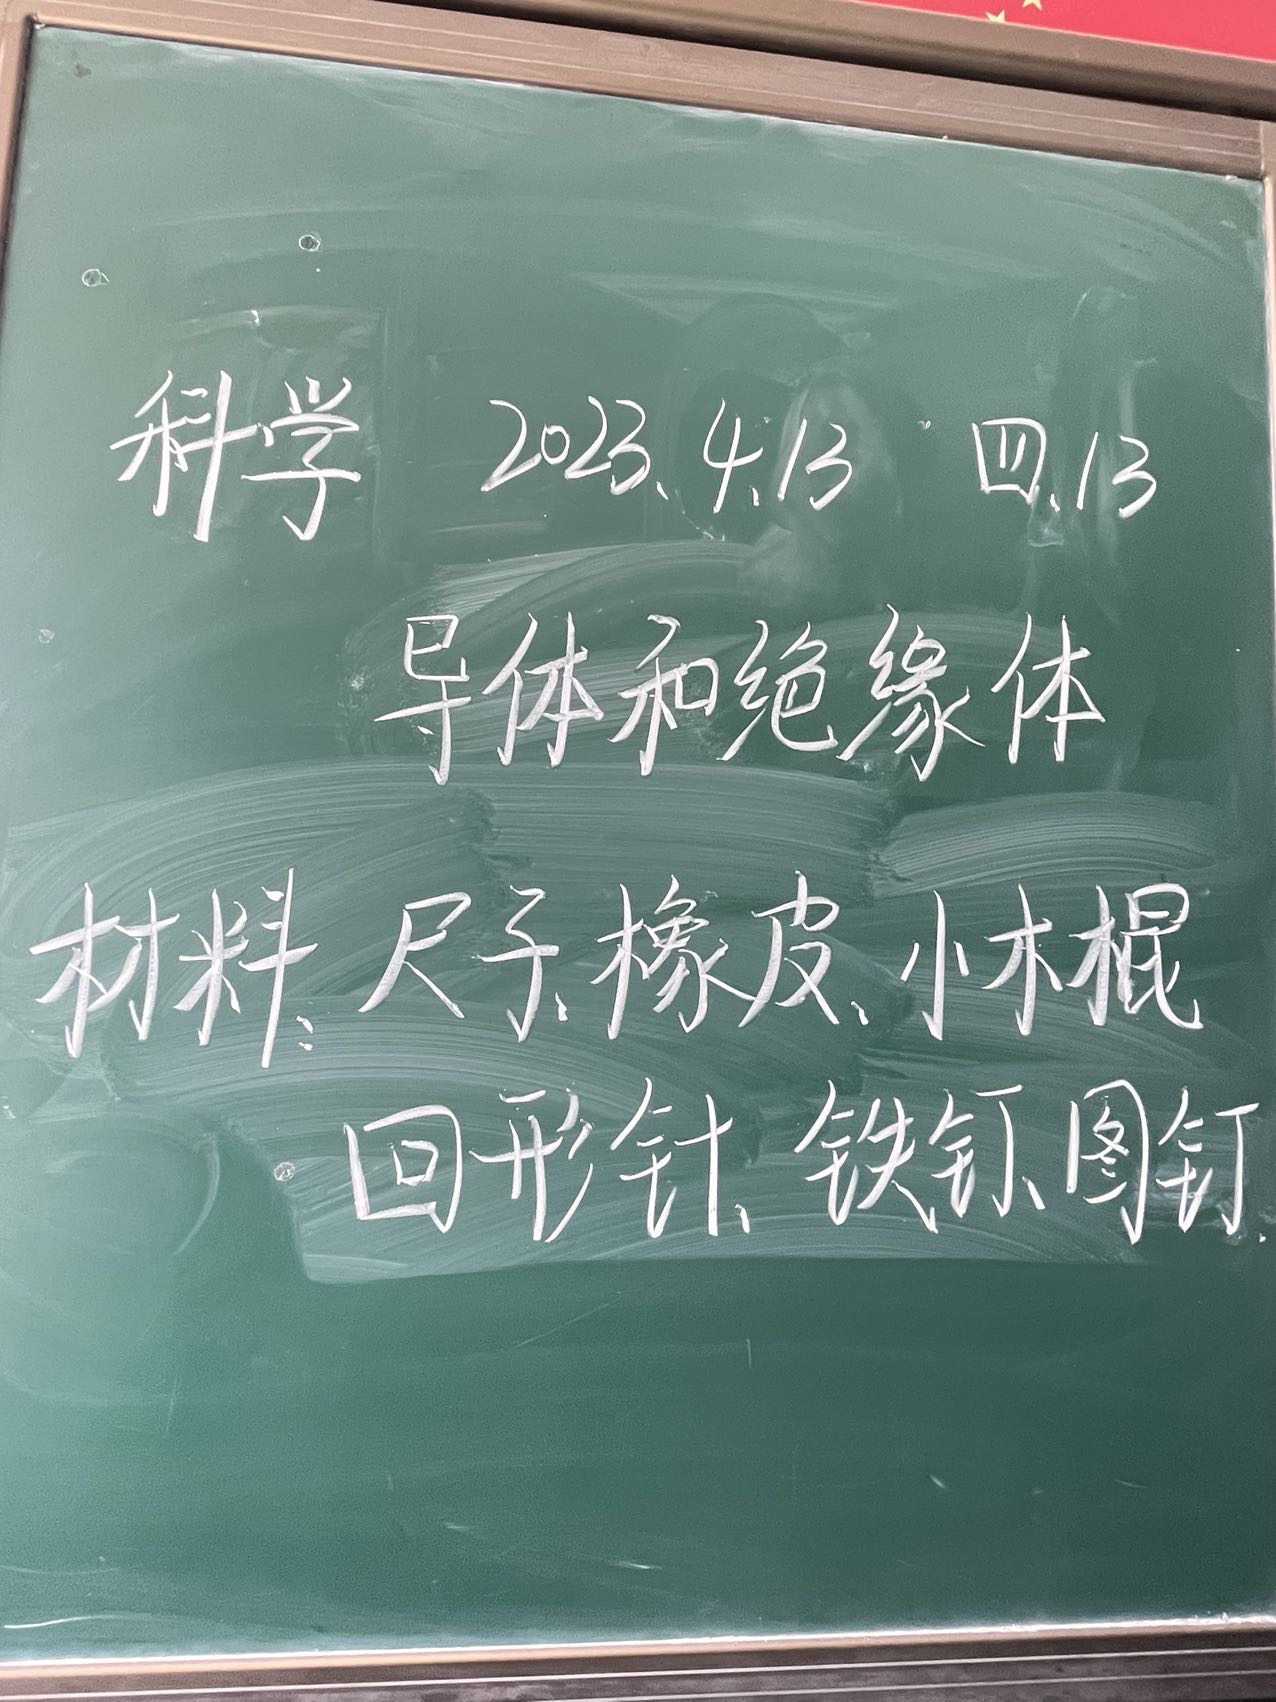 科学 2023.4.13 四.13
导体和绝缘体
材料:尺子、橡皮、小木棍
回形针、铁钉、图钉.